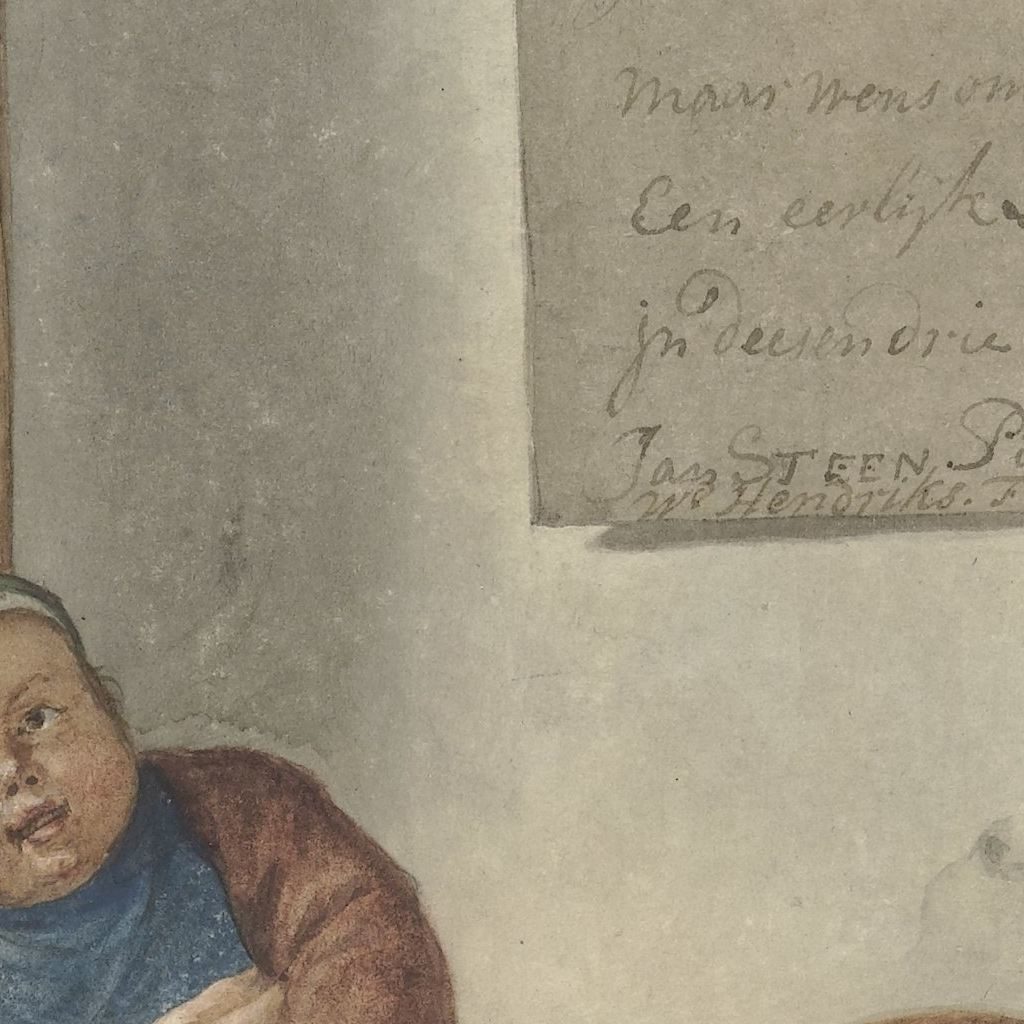 maar wens om
Een eerlijk
jn deesen drie
Jan STEEN. P
Ws Hendriks. F